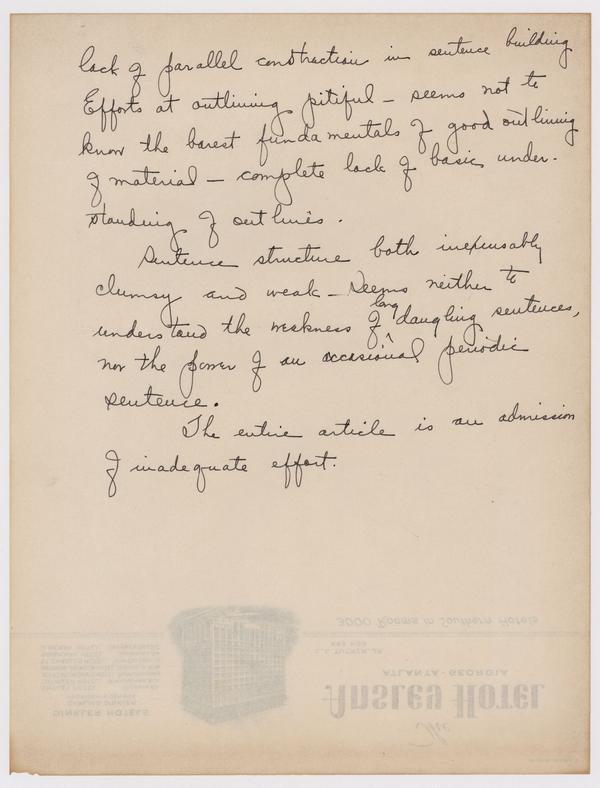 lack of parallel construction in sentence building
Efforts at outlining pitiful — seems not to
know the barest fundamentals of good outlining
of material — complete lack of basic under-
standing of outlines.
Sentence structure both inexcusably
clumsy and weak — Seems neither to
understand the weakness of long dangling sentences,
nor the power of an occasional periodic
sentence.
The entire article is an admission
of inadequate effort.
3000 Rooms in Southern Hotels
ATLANTA - GEORGIA
ANSLEY HOTEL
The
DINKLER HOTELS